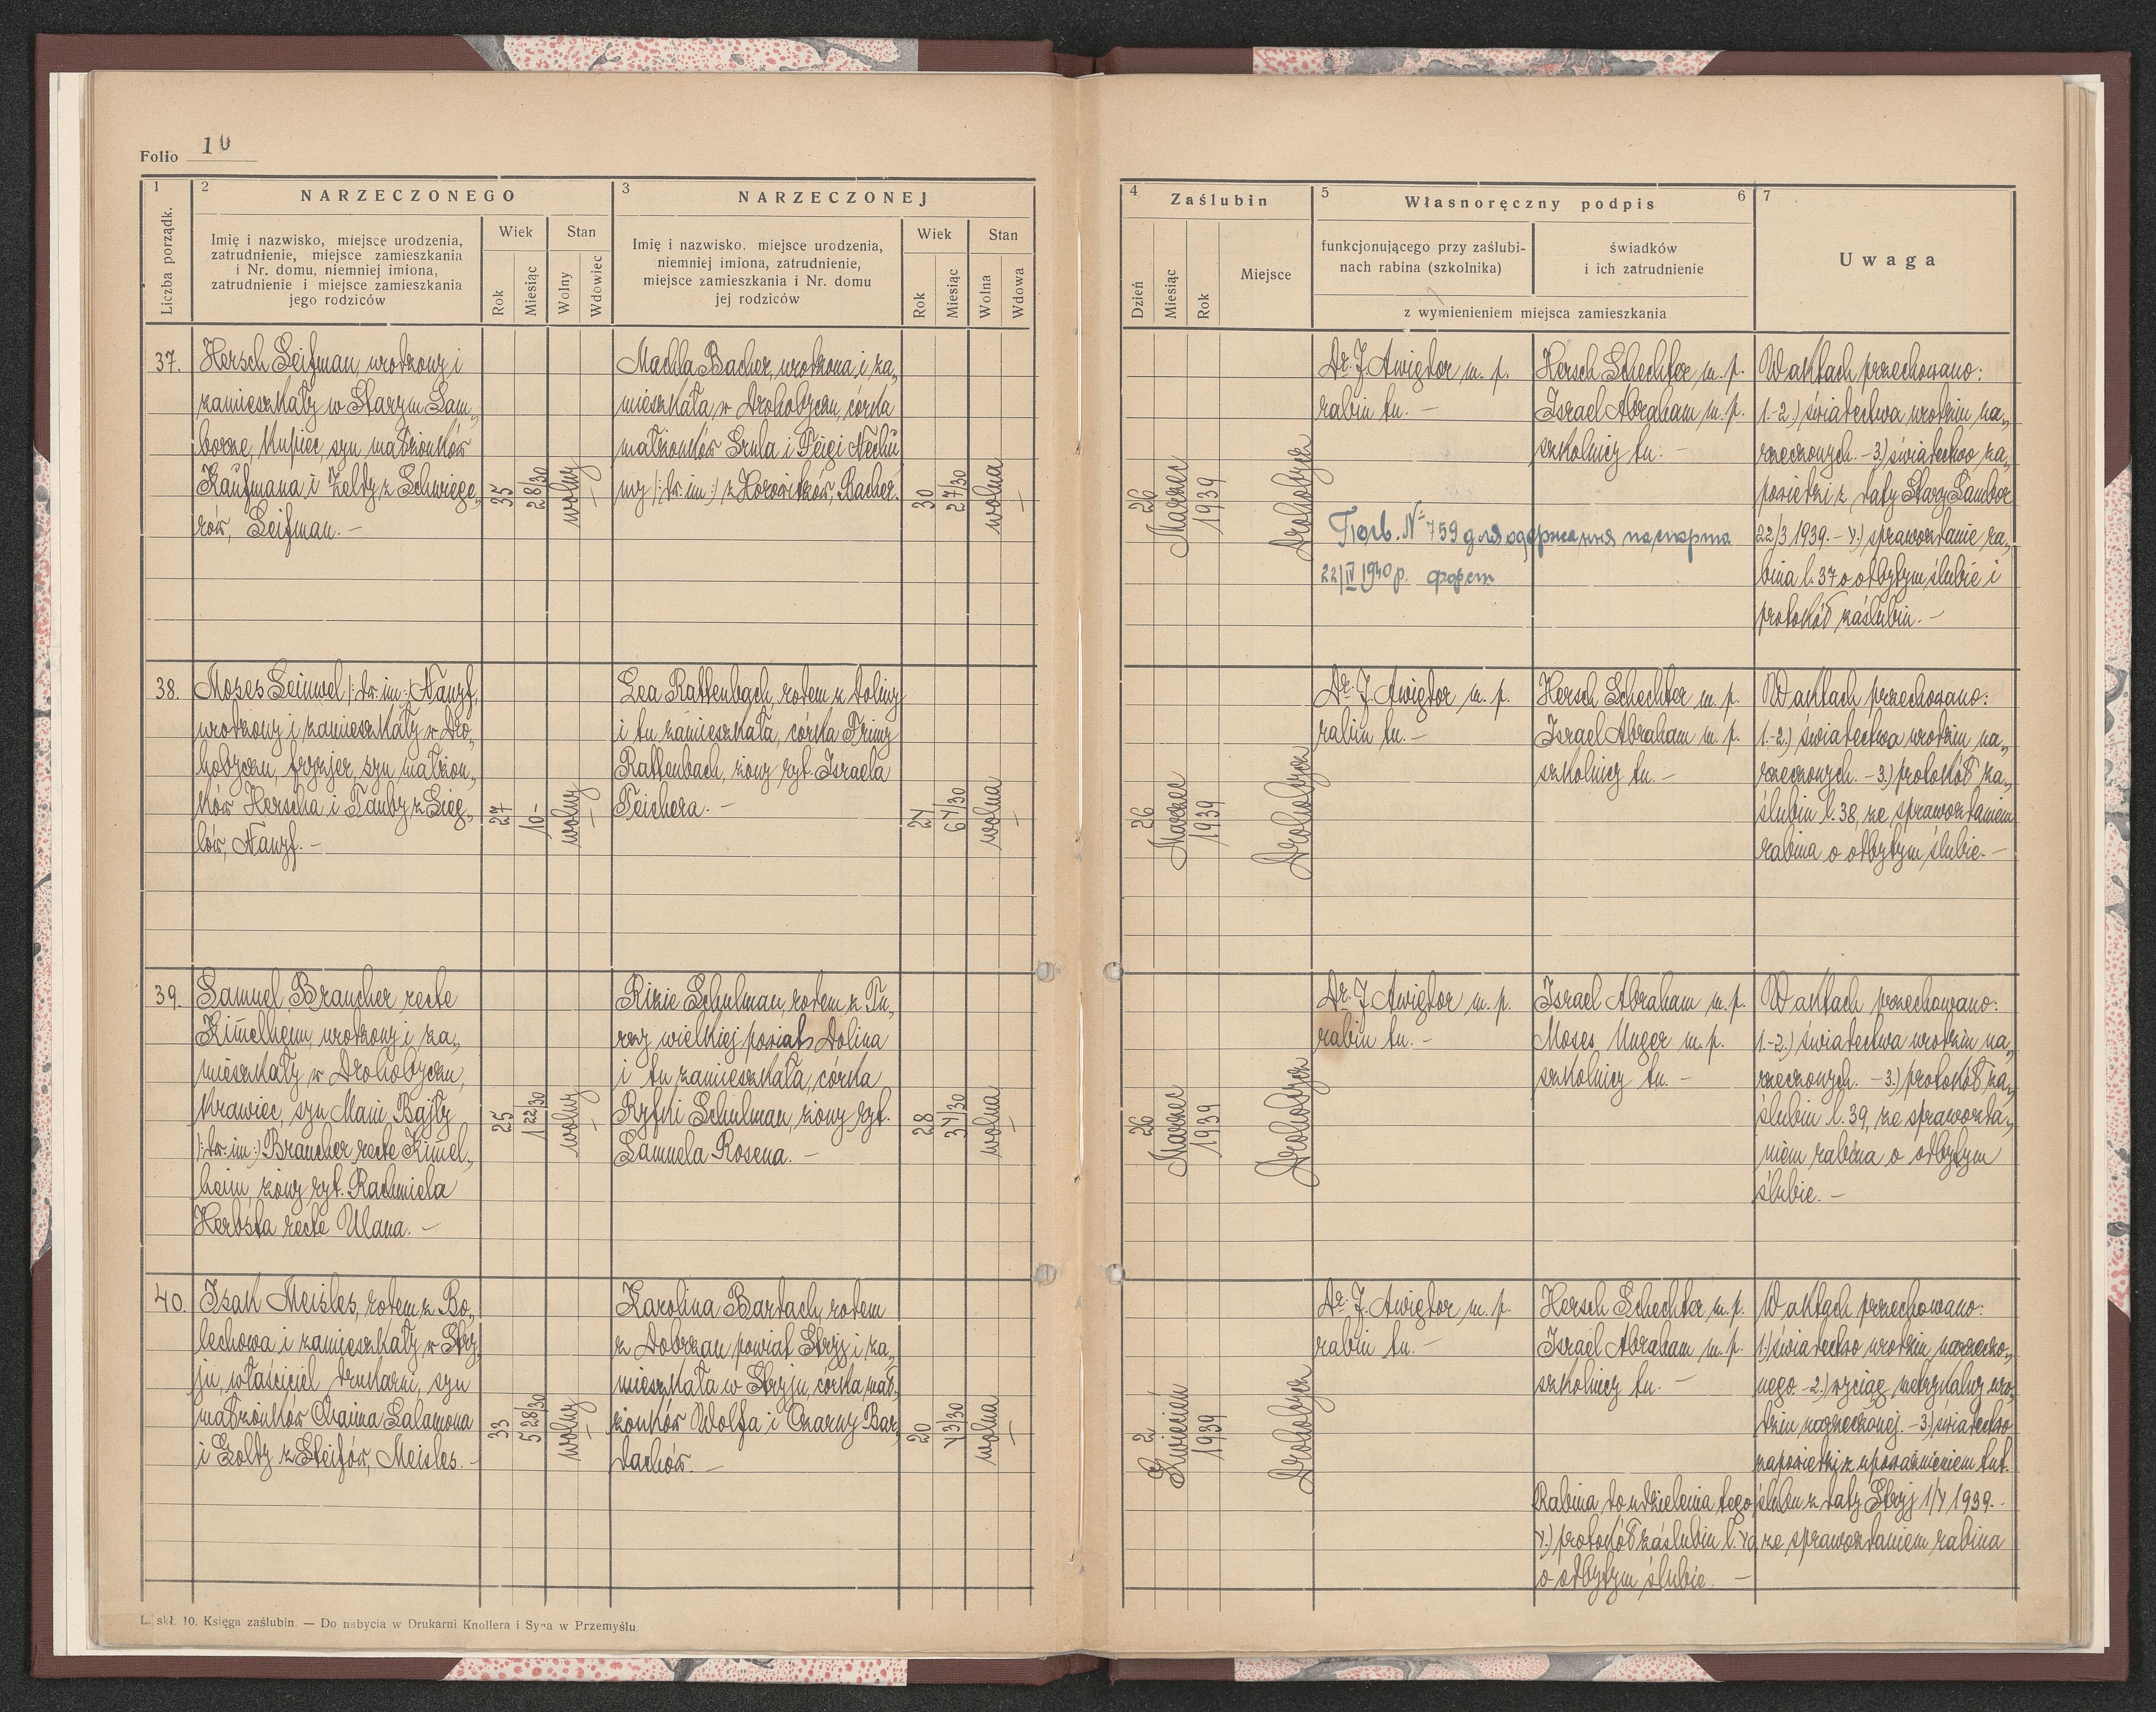 Folio 10
1
2 NARZECZONEGO
3 NARZECZONEJ
Liczba porządk.
Imię i nazwisko, miejsce urodzenia,
zatrudnienie, miejsce zamieszkania
i Nr. domu, niemniej imiona,
zatrudnienie i miejsce zamieszkania
jego rodziców
Wiek
Stan
Rok
Miesiąc
Wolny
Wdowiec
Imię i nazwisko, miejsce urodzenia,
niemniej imiona, zatrudnienie,
miejsce zamieszkania i Nr. domu
jej rodziców
Wiek
Stan
Rok
Miesiąc
Wolna
Wdowa
37.
Hersch Leifman, urodzony i
zamieszkały w Starym Sam„
borze, kupiec, syn małżonków
Kaufmana i Zeldy z Schwiege„
rów, Leifman. —
35
2 28/30
wolny
—
Machla Bacher, urodzona i za„
mieszkała w Drohobyczu, córka
małżonków Srula i Feigi Nechu
my /: dw. im :/ z Horowitzów, Bacher.
30
2 7/30
wolna
—
38.
Moses Leinwel /: dw. im :/ Nanzf,
urodzony i zamieszkały w Dro„
hobyczu, fryzjer, syn małżon„
ków Herscha i Tauby z Sieg„
lów, Nanzf. —
27
10 -
wolny
—
Lea Rattenbach, rodem z Doliny
i tu zamieszkała, córka Frimy
Rattenbach, żony ryt. Israela
Teichera. —
24
6 4/30
wolna
—
39.
Samuel Braucher recte
Kim̄elheim, urodzony i za„
mieszkały w Drohobyczu,
krawiec, syn Mani Bajły
/: dw. im :/ Braucher recte Kimel„
heim, żony ryt. Rachmiela
Herbsta recte Ulana. —
25
1 22/30
wolny
—
Rikie Schulman, rodem z Tu„
rzy wielkiej powiat Dolina
i tu zamieszkała, córka
Ryfki Schulman, żony ryt.
Samuela Rosena. —
28
3 4/30
wolna
—
40.
Isak Meisles, rodem z Bo„
lechowa i zamieszkały w Stry
ju, właściciel drukarni, syn
małżonków Chaima Salamona
i Goldy z Steifów, Meisles. -
33
5 28/30
wolny
—
Karolina Bardach, rodem
z Dobrzan powiat Stryj i za„
mieszkała w Stryju, córka mał„
żonków Wolfa i Czarny Bar„
dachów. —
20
4 3/30
wolna
—
L. skł. 10. Księga zaślubin. — Do nabycia w Drukarni Knollera i Syna w Przemyślu
4 Zaślubin
5 Własnoręczny podpis 6
7
Dzień
Miesiąc
Rok
Miejsce
funkcjonującego przy zaślubi-
nach rabina (szkolnika)
świadków
i ich zatrudnienie
z wymienieniem miejsca zamieszkania
Uwaga
26
Marzec
1939
Drohobycz
Dr. J. Awigdor m. p.
rabin tu. —
Hersch Schechter m. p.
Israel Abraham m. p.
szkolnicy tu. —
W aktach przechowano:
1.-2.) świadectwa urodzin na„
rzeczonych. - 3.) świadectwo za„
powiedzi z daty Stary Sambor
22/3 1939. - 4.) sprawozdanie ra„
bina l. 37 o odbytym ślubie i
protokół zaślubin. —
Посв. № 759 для одержання паспорта
22/IV 1940 р.
26
Marzec
1939
Drohobycz
Dr. J. Awigdor m. p.
rabin tu. —
Hersch Schechter m. p.
Israel Abraham m. p.
szkolnicy tu. —
W aktach przechowano:
1.-2.) świadectwa urodzin na„
rzeczonych. - 3.) protokół za„
ślubin l. 38, ze sprawozdaniem
rabina o odbytym ślubie. —
26
Marzec
1939
Drohobycz
Dr. J. Awigdor m. p.
rabin tu. —
Israel Abraham m. p.
Moses Unger m. p.
szkolnicy tu. —
W aktach przechowano:
1.-2.) świadectwa urodzin na„
rzeczonych. - 3.) protokół za„
ślubin l. 39, ze sprawozda„
niem rabina o odbytym
ślubie. —
2
Kwiecień
1939
Drohobycz
Dr. J. Awigdor m. p.
rabin tu. —
Hersch Schechter m. p.
Israel Abraham m. p.
szkolnicy tu. —
W aktach przechowano:
1.) świadectwo urodzin narzeczo„
nego - 2.) wyciąg metrykalny uro„
dzin narzeczonej. - 3.) świadectwo
zapowiedzi z upoważnieniem tut.
Rabina do udzielenia tego ślubu z daty Stryj 1/4 1939. -
4.) protokół zaślubin l. 40 ze sprawozdaniem rabina
o odbytym ślubie. —